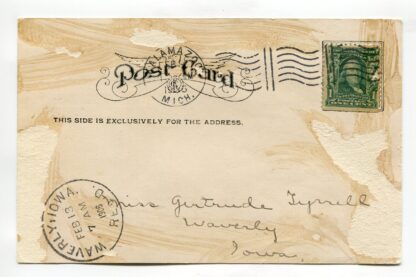 KALAMAZOO
MICH.
Post Card
THIS SIDE IS EXCLUSIVELY FOR THE ADDRESS.
WAVERLY, IOWA.
REC'D.
FEB 13
7 AM
Miss Gertrude Tyrrell
Waverly
Iowa.